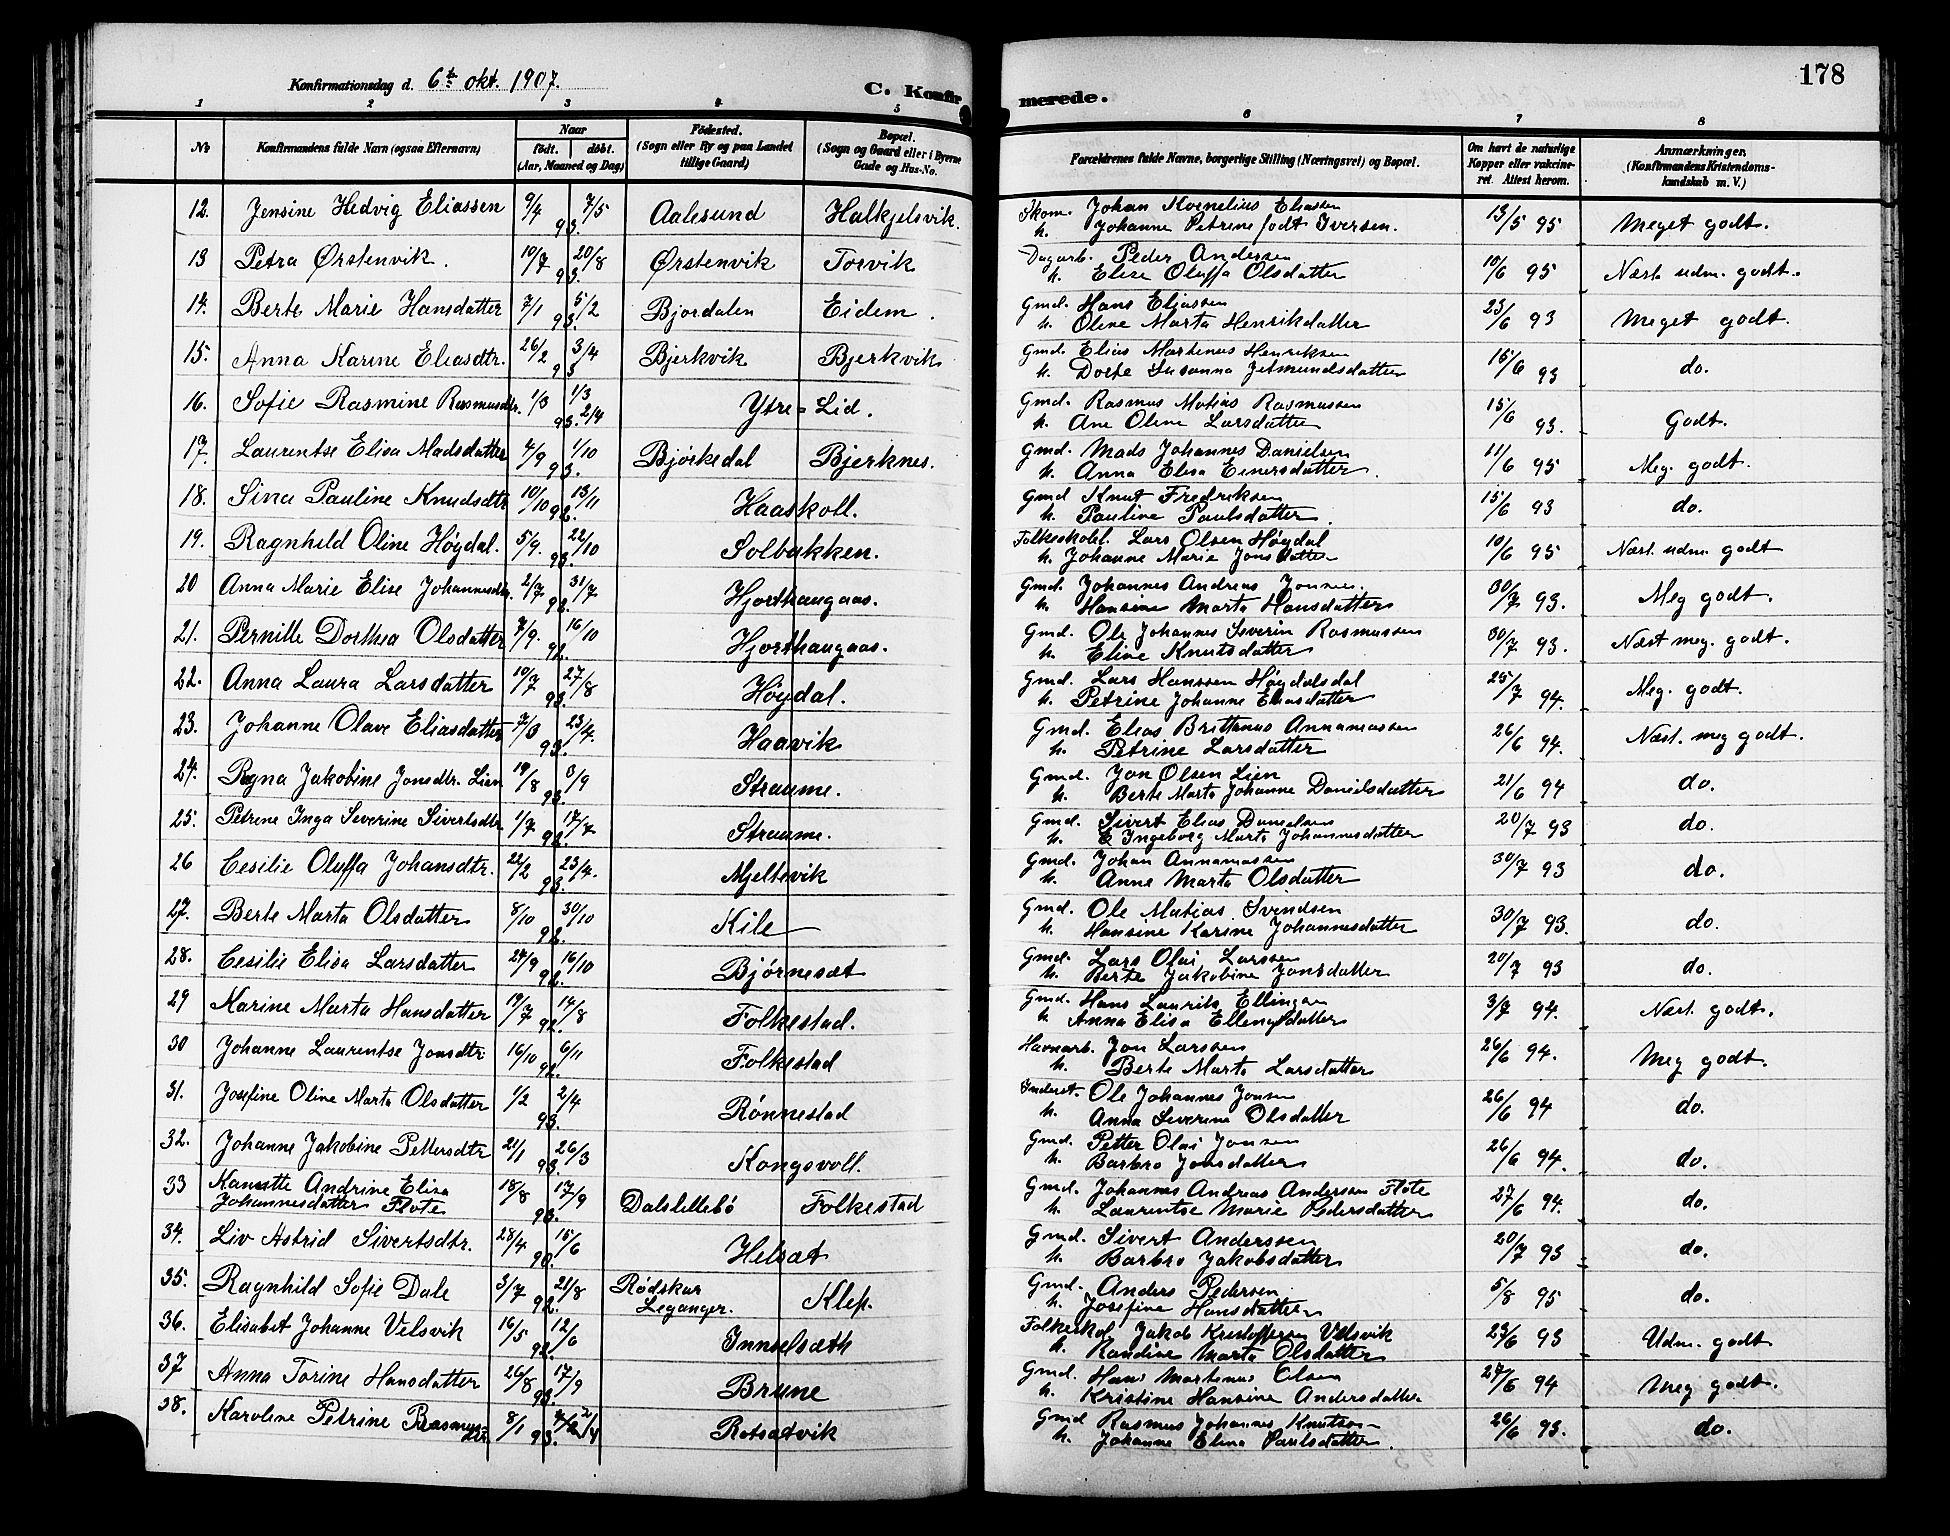 178
Konfirmationsdag d. 6te okt. 1907.
C. Konfir
merede.
1 2 3 4 5 6 7 8
No
Konfirmandens fulde Navn (ogsaa Efternavn)
Naar
født. døbt.
(Aar, Maaned og Dag)
Fødested.
(Sogn eller By og paa Landet
tillige Gaard)
Bopæl.
(Sogn og Gaard eller i Byerne
Gade og Hus-No.
Forældrenes fulde Navne, borgerlige Stilling (Næringsvei) og Bopæl.
Om havt de naturlige
Kopper eller vakcine-
ret. Attest herom.
Anmærkninger.
(Konfirmandens Kristendoms-
kundskab m. V.)
12. Jensine Hedvig Eliassen 9/4 93. 7/5 Aalesund Halkjelsvik. Skom. Johan Kornelius Eliassen 13/5 95 Meget godt.
h. Johanne Petrine født Iversen.
13 Petra Ørstenvik. 10/7 93. 20/8 Ørstenvik Torvik Dagarb. Peder Andersen 10/6 95 Næst udm. godt.
h. Elise Oluffa Olsdatter
14. Berte Marie Hansdatter 7/1 93. 5/2 Bjordalen Eidem. Gmd. Hans Eliassen 23/6 93 Meget godt.
h. Oline Marta Henrikdatter
15. Anna Karine Eliasdtr. 26/2 93 3/4 Bjerkvik Bjerkvik Gmd. Elias Martenus Henriksen 15/6 93 do.
h. Dorte Susanna Jetmundsdatter
16. Sofie Rasmine Rasmusdtr. 1/3 93. 1/3 2/4 Ytre-Lid. Gmd. Rasmus Matias Rasmussen 15/6 93. Godt.
h. Ane Oline Larsdatter
17. Laurentse Elisa Madsdatter 4/9 93. 1/10 Bjørkedal Bjerknes. Gmd. Mads Johannes Danielsen 11/6 95 Meg. godt.
h. Anna Elisa Einersdatter.
18. Sina Pauline Knudsdtr 10/10 92. 13/11 Haaskoll. Gmd Knut Fredriksen 15/6 93 do.
h. Pauline Paulsdatter.
19. Ragnhild Oline Høydal. 5/9. 93. 22/10 Solbakken. Folkeskolel. Lars Olsen Høydal 10/6 95 Næst udm. godt
h. Johanne Marie Jonsdatter
20 Anna Marie Elise Johannesdtr. 2/7 92. 31/7 Hjorthaugaas. Gmd. Johannes Andreas Jonsen. 30/7 93. Meg godt.
h. Hansine Marta Hansdatter
21. Pernille Dorthea Olsdatter 7/9. 92. 16/10 Hjorthaugaas. Gmd. Ole Johannes Severin Rasmussen 30/7 93. Næst meg. godt.
h. Eline Knutsdatter
22. Anna Laura Larsdatter 10/7 93. 27/8 Høydal. Gmd. Lars Hanssen Høydalsdal 25/7 94. Meg. godt.
h. Petrine Johanne Eliasdatter
23. Johanne Olave Eliasdatter 7/3 93. 23/4. Haavik Gmd. Elias Brittanus Annamassen 26/6 94. Næst. meg godt.
h. Petrine Larsdatter
24. Ragna Jakobine Jonsdtr. Lien 19/8 93. 3/9 Straume. Gmd. Jon Olsen Lien 21/6 94 do.
h. Berte Marta Johanne Danielsdatter
25. Petrene Inga Severine Sivertsdtr 1/7 92. 17/7 Straume. Gmd. Sivert Elias Danielsen 20/7 93 do.
h. Ingeborg Marta Johannesdatter
26 Cesilie Oluffa Johansdtr. 22/2 93. 23/4. Mjeltevik Gmd. Johan Annamassen 30/7 93 do.
h. Anne Marta Olsdatter
27. Berte Marta Olsdatter 8/10 92. 30/10 Kile Gmd. Ole Matias Svendsen 30/7 93. do.
h. Hansine Karine Johannesdatter
28. Cesilie Elisa Larsdatter 24/9 92. 16/10 Bjørnesæt Gmd. Lars Olai Larssen 20/7 93 do.
h. Berte Jakobine Jonsdatter
29 Karine Marta Hansdatter 19/7 92. 14/8 Folkestad. Gmd. Hans Laurits Ellingsen 3/7 94. Næst. godt.
h. Anna Elisa Ellingsdatter
30 Johanne Laurentse Jonsdtr. 16/10 92. 6/11 Folkestad Havnarb. Jon Larssen 26/6 94. Meg godt.
h. Berte Marta Larsdatter
31. Josefine Oline Marta Olsdatter 1/2 93. 2/4 Rønnestad Inderst. Ole Johannes Jonsen 26/6 94 do.
h. Anna Severine Olsdatter
32. Johanne Jakobine Pettersdtr 21/1 93. 26/3 Kongsvoll. Gmd. Petter Olai Jonsen 26/6 94. do.
h. Barbro Jonsdatter
33 Kanutte Andrine Elisa 18/8 93. 17/9 Dalslillebø Folkestad Gmd. Johannes Andreas Andersen Flote 27/6 94. do.
Johannesdatter Flote h. Laurentse Marie Pedersdatter
34. Liv Astrid Sivertsdtr. 28/4 90. 15/6 Helsæt Gmd. Sivert Anderssen 20/7 93 do.
h. Barbro Jakobsdatter
35. Ragnhild Sofie Dale 3/7 92. 21/8 Rødskar Klep. Gmd. Anders Pedersen 5/8 95 do.
Leganger. h. Josefine Hansdatter
36. Elisabet Johanne Velsvik 16/5 92. 12/6 Innselsæth Folkeskol. Jakob Kristoffersen Velsvik 23/6 93 Udm. godt
h. Randine Marta Olsdatter
37 Anna Torine Hansdatter 26/8 93. 17/9 Brune Gmd. Hans Martenus Olsen 27/6 94 Meg godt.
h. Kristine Hansine Andersdatter
38. Karoline Petrine Rasmus- 8/1 93. 2/4 Rotsætvik Gmd Rasmus Johannes Knutson 26/6 93. do.
dtr. h. Johanne Elina Paulsdatter.